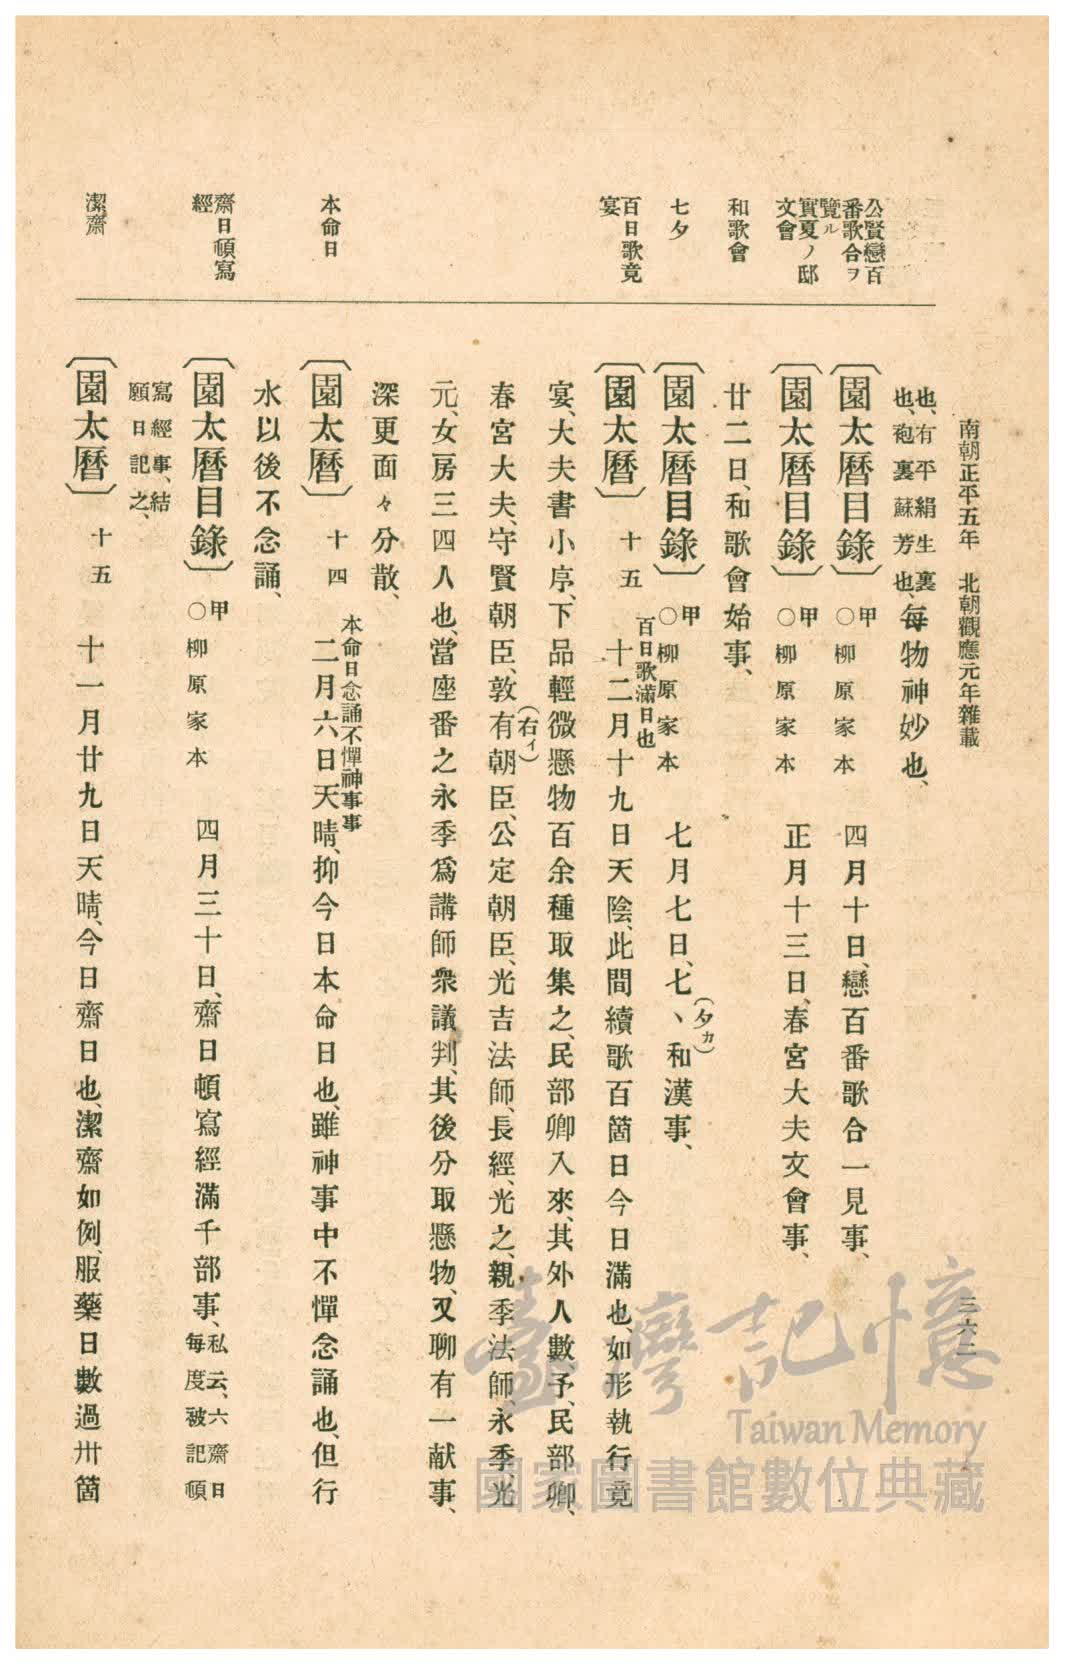 南朝正平五年　北朝觀應元年雜載
三六二
公賢戀百
番歌合ヲ
覽ル
實夏ノ邸
文會
和歌會
七夕
百日歌竟
宴
本命日
齋日頓寫
經
潔齋
也、有平絹生裏
也、袍裏蘇芳也、每物神妙也、
〔園太曆目錄〕○甲柳原家本　四月十日、戀百番歌合一見事、
〔園太曆目錄〕○甲柳原家本　正月十三日、春宮大夫文會事、
廿二日、和歌會始事、
〔園太曆目錄〕○甲柳原家本　七月七日、七丶(夕カ)和漢事、
〔園太曆〕十五　百日歌滿日也　十二月十九日天陰、此間續歌百箇日今日滿也、如形執行竟
宴、大夫書小序、下品輕微懸物百余種取集之、民部卿入來、其外人數、予、民部卿、
春宮大夫、守賢朝臣、敦有(右イ)朝臣、公定朝臣、光吉法師、長經、光之、親季法師、永季、光
元、女房三四人也、當座番之永季爲講師衆議判、其後分取懸物、又聊有一献事、
深更面々分散、
〔園太曆〕十四　本命日念誦不憚神事事　二月六日天晴、抑今日本命日也、雖神事中不憚念誦也、但行
水以後不念誦、
〔園太曆目錄〕○甲柳原家本　四月三十日、齋日頓寫經滿千部事、私云、六齋日
每度被記頓
寫經事、結
願日記之、
〔園太曆〕十五　十一月廿九日天晴、今日齋日也、潔齋如例、服藥日數過卅箇
臺灣記憶
Taiwan Memory
國家圖書館數位典藏